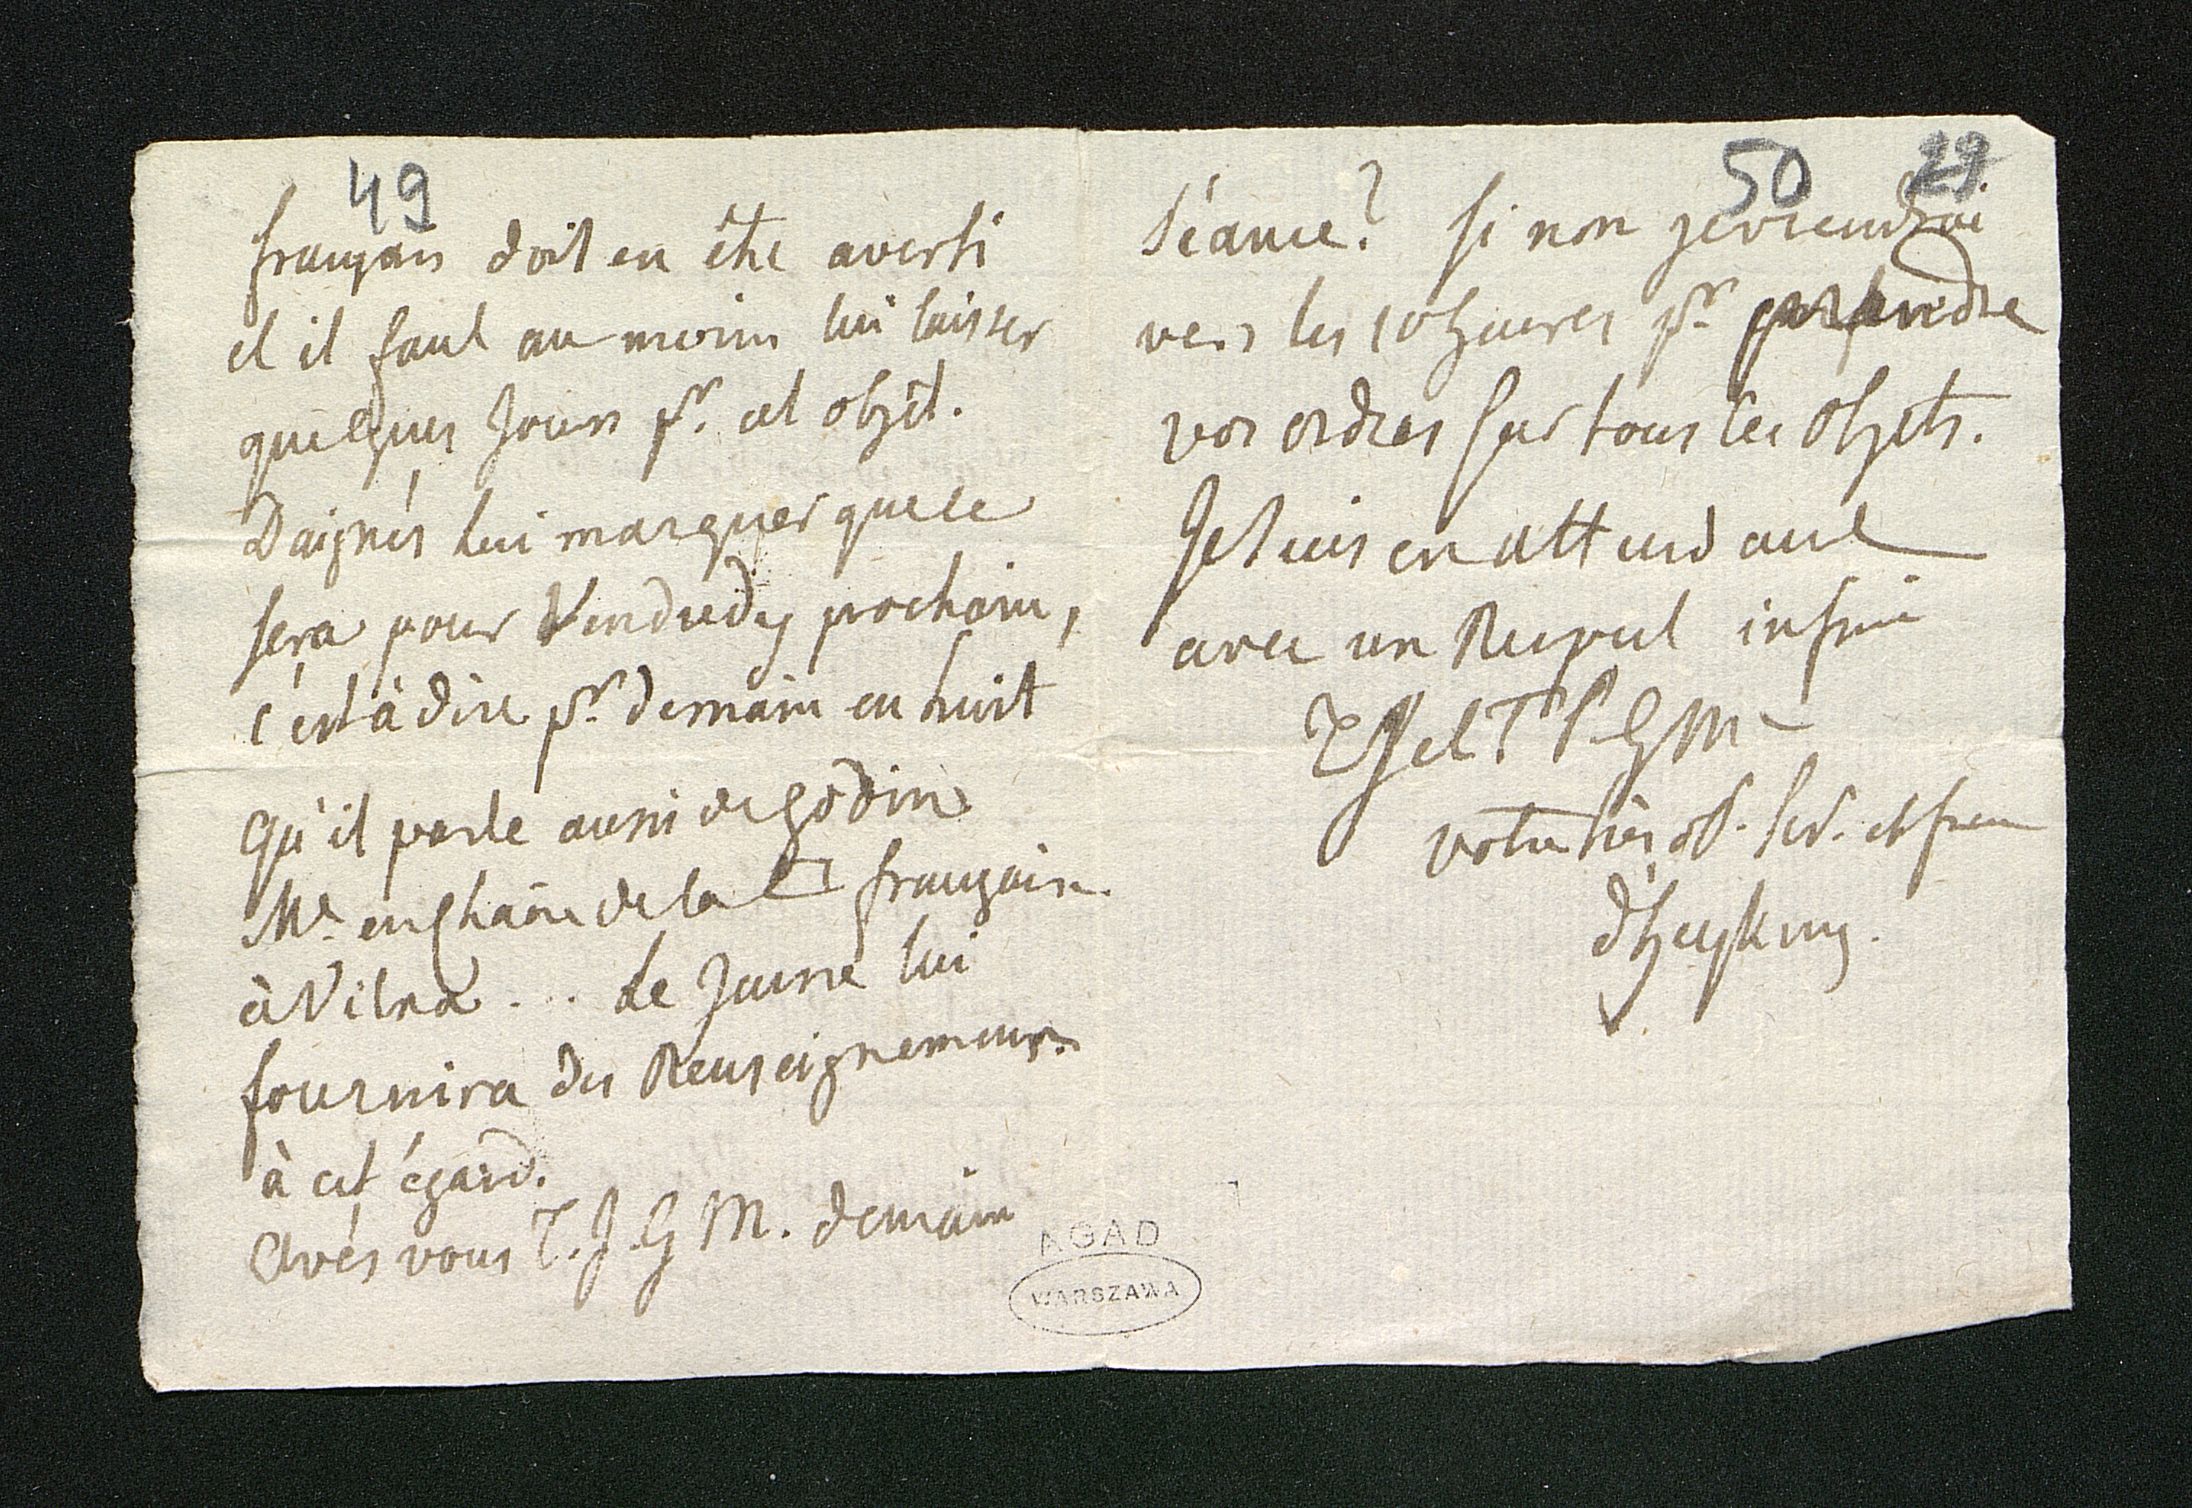 49
français doit en être averti
et il faut au moins lui laisser
quelques Jours pr. cet objêt.
Daignés lui marquer que ce
sera pour Vendredy prochain,
c'est à dire pr. demain en huit
qu'il parle aussi de Godin
Me. en Chaire de la □ françoise
à Vilna ... Le Jeune lui
fournira des Renseignemens
à cet égard.
Avés vous T. J. G M. demain
50 29
Séance? Si non je viendrai
vers les 10 heures pr. prendre
vos ordres sur tous les objets.
Je suis en attendant
avec un Respect infini
T J et T P G M
votre très ob. ser. et frere
d'Heyking.
AGAD
WARSZAWA